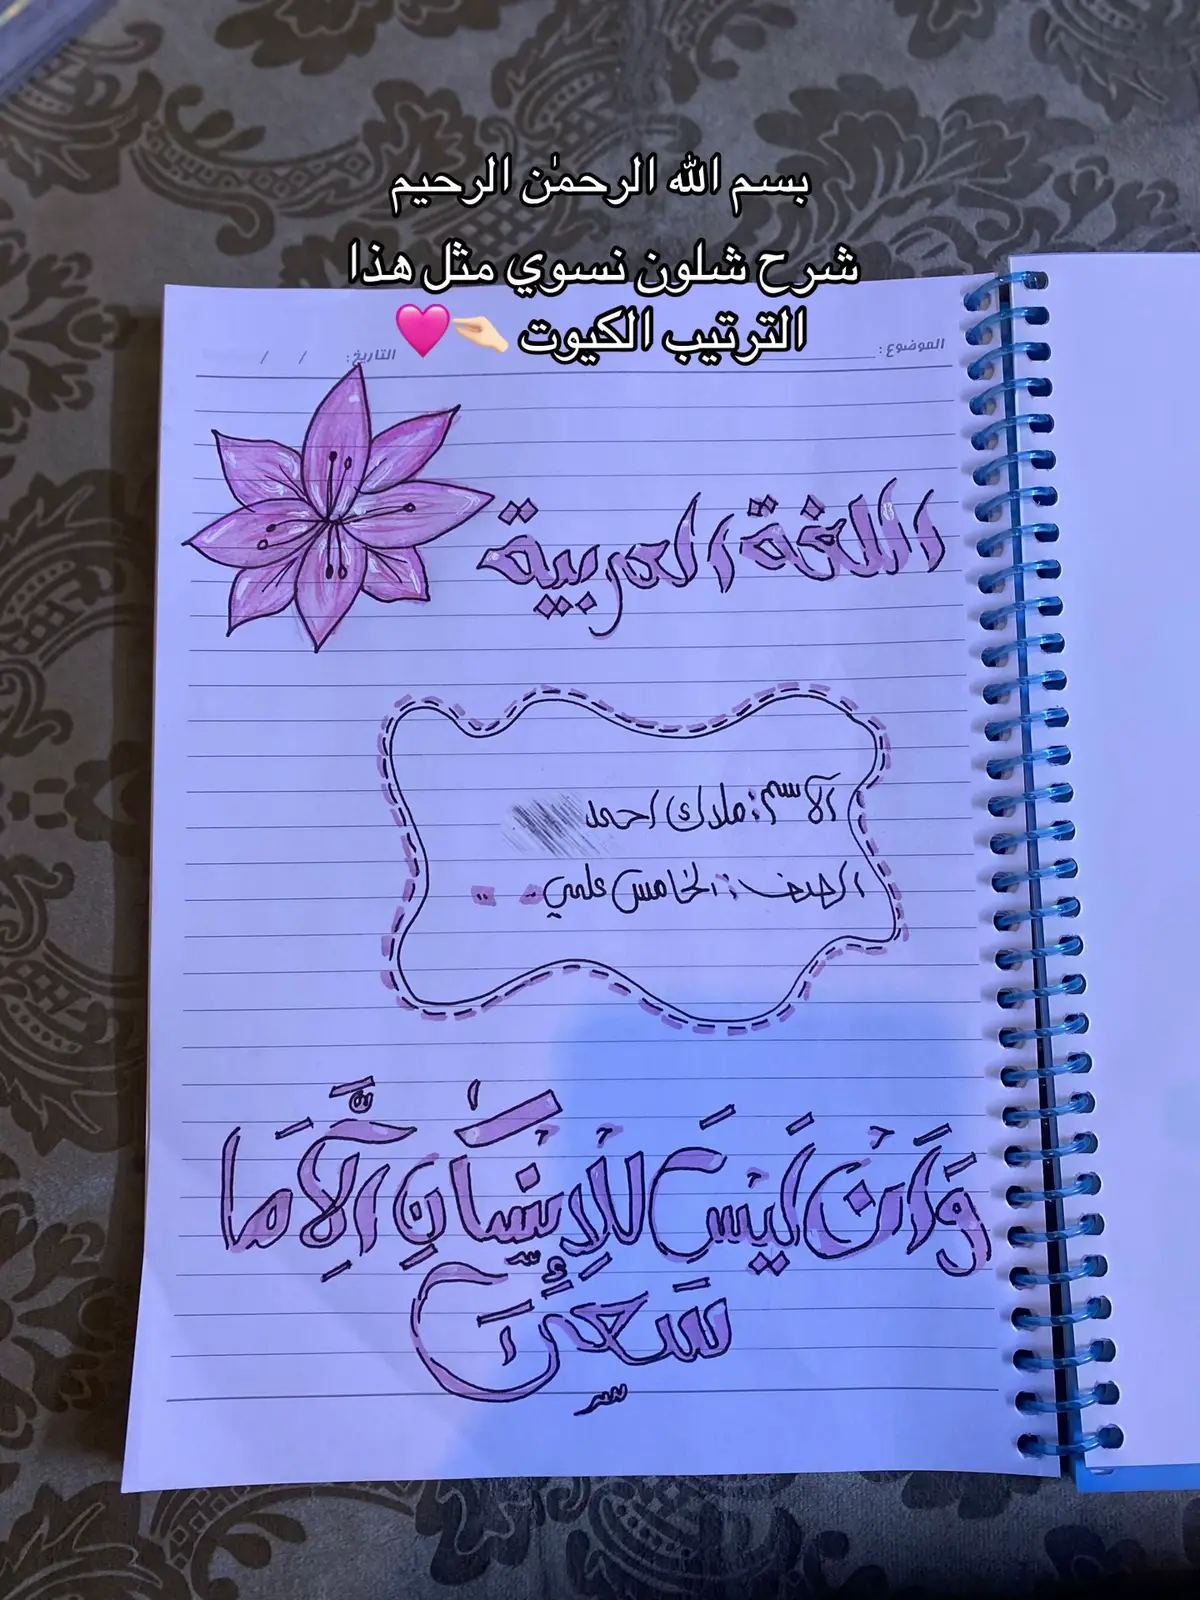 بسم الله الرحمٰن الرحيم
شرح شلون نسوي مثل هذا
الترتيب الكيوت 🤏🏻🩷
الموضوع: التاريخ: / /
اللغة العربية
الاسم: ملاك احمد
الصف: الخامس علمي
وَأَنْ لَيْسَ لِلْإِنْسَانِ إِلَّا مَا
سَعَىٰ